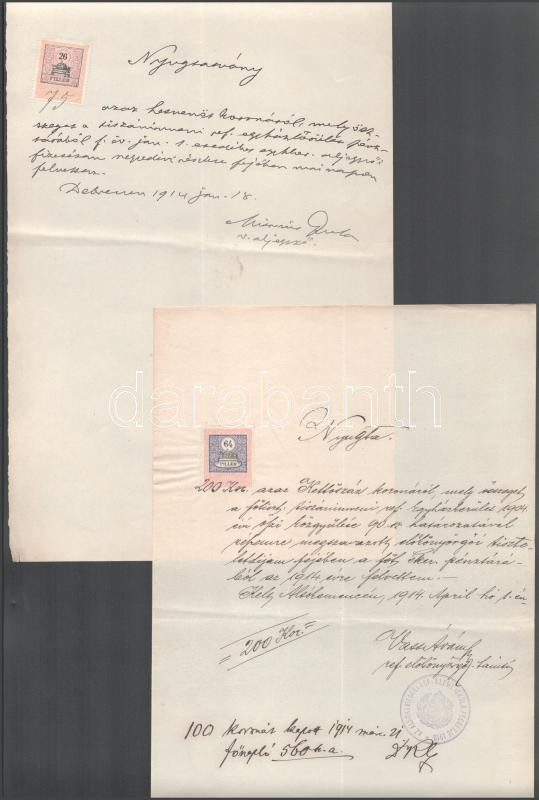 Nyugtatvány
26
FILLÉR
75
azaz hetvenöt koronáról, mely ösz-
szeget a tiszáninneni ref. egyházkerület pénz-
tárából f. év jan. 1. esedékes egyhker. aljegyzői
fizetésem negyedévi részlete fejében mai napon
felvettem.
Debrecen 1914 jan. 18.
aljegyző.
darabanth.com
Nyugta.
64
FILLÉR
200 Kor. azaz Kettőszáz koronáról, mely összeget
a főtiszt. tiszáninneni ref. Egyházkerület 1904.
évi őszi közgyűlése 90 sz. határozatával
részemre megszavazott előkönyörgői tisztelet-
díjam fejében a főt. Ker. pénztárá-
ból az 1914. évre felvettem.—
Kelt, 1914. April hó 1-én
= 200 Kor. =
Vass
ref. előkönyörgő
100 koronát kapott 1914 márc. 21
főnapló 560 k. a.